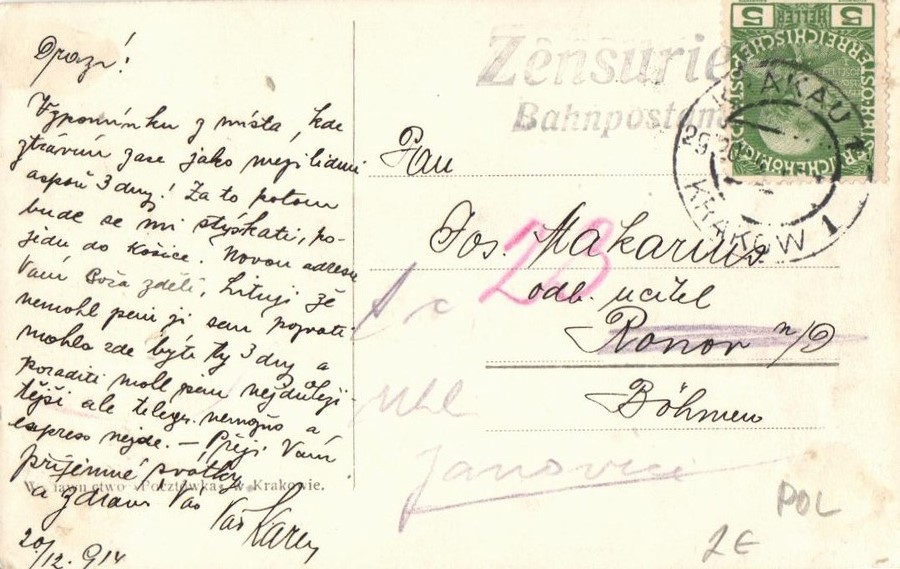 Drazí!
Vzpomínku z místa, kde
ztrávím zase jako mezi lidmi
aspoň 3 dny! Za to potom
bude se mi stýskati, po-
jedu do Košice. Novou adresu
Vám Boža zdělí, Lituji že
nemohl jsem ji sem pozvati
mohla zde býti ty 3 dny a
poraditi mohl jsem nejdůleži-
tější ale telegr. nemožno a
express nejde. — Přeji Vám
příjemné svátky
a zdraví Vás
Váš Karel
20/12. 914
Pocztówka w Krakowie.
Zensuriert
Bahnpostamt
5 HELLER 5
KRAKAU 1
29
KRAKÓW 1
Pan
Jos. Makarius
odb. učitel
Ronov n/D
Böhmen
28
Janovice
POL
2E